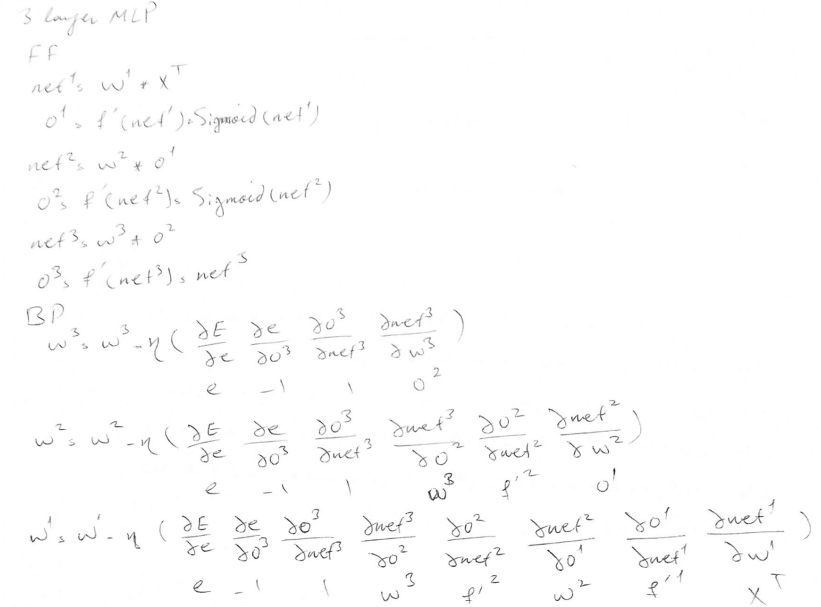 3 layer MLP
FF
net¹ = w¹ * x^T
o¹ = f'(net¹) = Sigmoid(net¹)
net² = w² * o¹
o² = f'(net²) = Sigmoid(net²)
net³ = w³ * o²
o³ = f'(net³) = net³
BP
w³ = w³ - η ( ∂E/∂e ∂e/∂o³ ∂o³/∂net³ ∂net³/∂w³ )
e -1 1 o²
w² = w² - η ( ∂E/∂e ∂e/∂o³ ∂o³/∂net³ ∂net³/∂o² ∂o²/∂net² ∂net²/∂w² )
e -1 1 w³ f'² o¹
w¹ = w¹ - η ( ∂E/∂e ∂e/∂o³ ∂o³/∂net³ ∂net³/∂o² ∂o²/∂net² ∂net²/∂o¹ ∂o¹/∂net¹ ∂net¹/∂w¹ )
e -1 1 w³ f'² w² f'¹ x^T